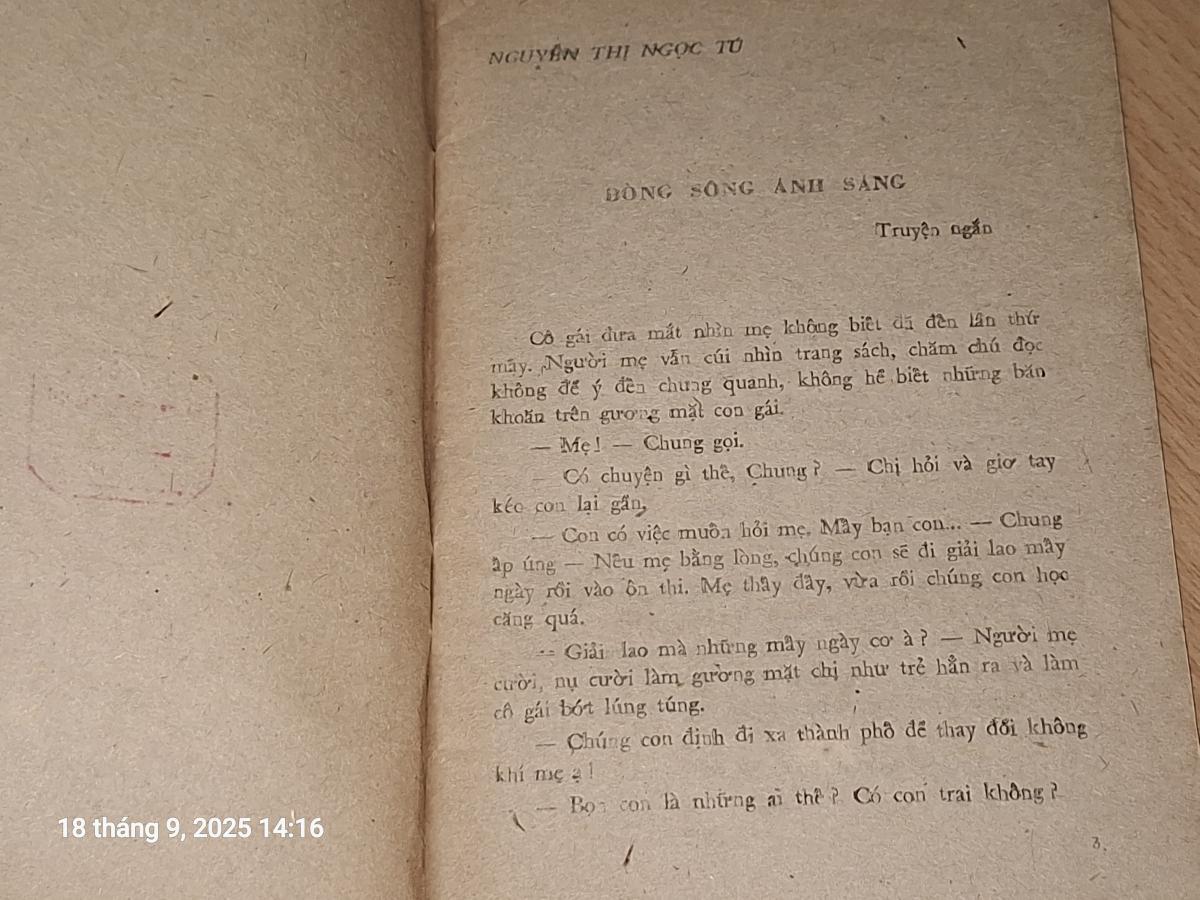 NGUYỄN THỊ NGỌC TÚ
DÒNG SÔNG ÁNH SÁNG
Truyện ngắn
Cô gái đưa mắt nhìn mẹ không biết đã đến lần thứ
mấy. Người mẹ vẫn cúi nhìn trang sách, chăm chú đọc
không để ý đến chung quanh, không hề biết những băn
khoăn trên gương mặt con gái.
— Mẹ! — Chung gọi.
Có chuyện gì thế, Chung? — Chị hỏi và giơ tay
kéo con lại gần,
— Con có việc muốn hỏi mẹ. Mấy bạn con... — Chung
ấp úng — Nếu mẹ bằng lòng, chúng con sẽ đi giải lao mấy
ngày rồi vào ôn thi. Mẹ thấy đấy, vừa rồi chúng con học
căng quá.
— Giải lao mà những mấy ngày cơ à? — Người mẹ
cười, nụ cười làm gường mặt chị như trẻ hẳn ra và làm
cô gái bớt lúng túng.
— Chúng con định đi xa thành phố để thay đổi không
khí mẹ ạ!
— Bọn con là những ai thế? Có con trai không?
3
18 tháng 9, 2025 14:16